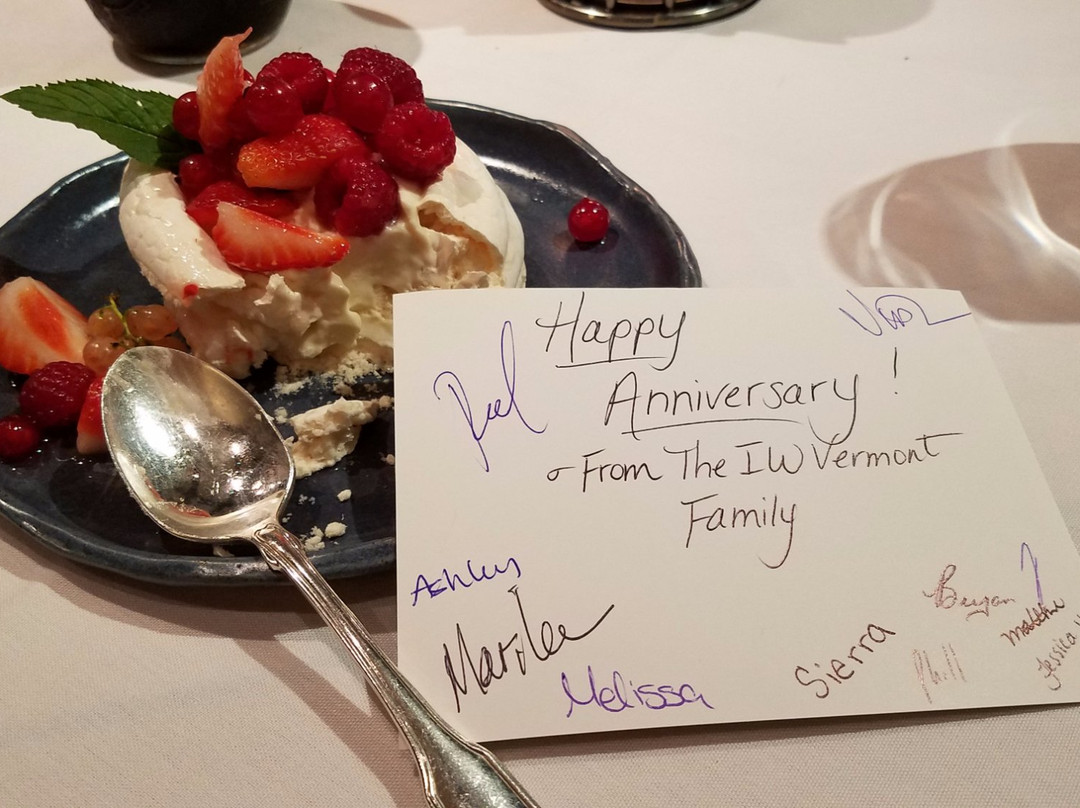 Happy
Anniversary!
From The IW Vermont
Family
Ashley
Marilee
Melissa
Sierra
Bryan
Phill
Matthew
Jessica